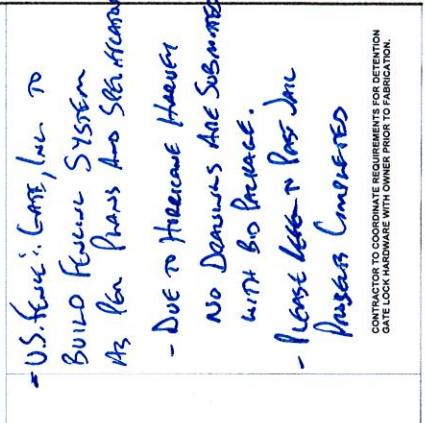 - U.S. Fence & Gate, Inc. to
Build Fencing System
As per Plans and Specifications
- Due to Hurricane Harvey
No Drawings are Submitted
with Bid Package.
- Please Refer to Past Jail
Projects Completed
CONTRACTOR TO COORDINATE REQUIREMENTS FOR DETENTION
GATE LOCK HARDWARE WITH OWNER PRIOR TO FABRICATION.